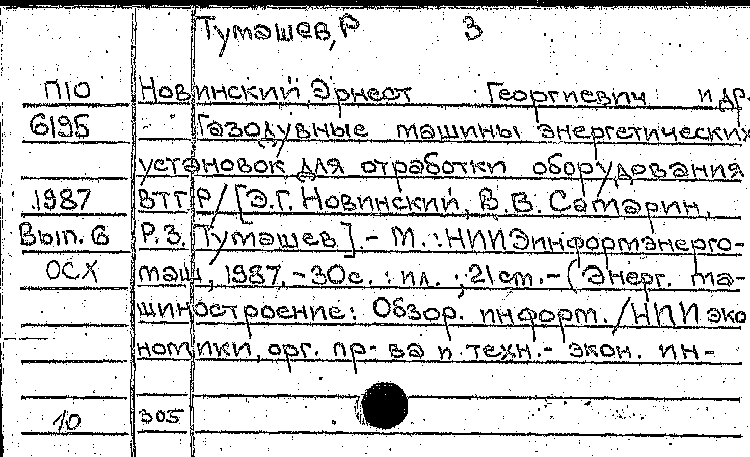 Тумашев, Р 3
П10 Новинский, Эрнест Георгиевич и др.
6195 Газодувные машины энергетических
установок для отработки оборудования
1987 ВТГР/[Э.Г. Новинский, В.В. Сатарин,
Вып. 6 Р.З. Тумашев].- М.: НИИЭинформэнерго-
ОСХ маш, 1987.-30с.: ил.; 21ст.-(Энерг. ма-
шиностроение: Обзор. информ./НИИ эко
номики, орг. пр-ва и техн.- экон. ин-
10 305